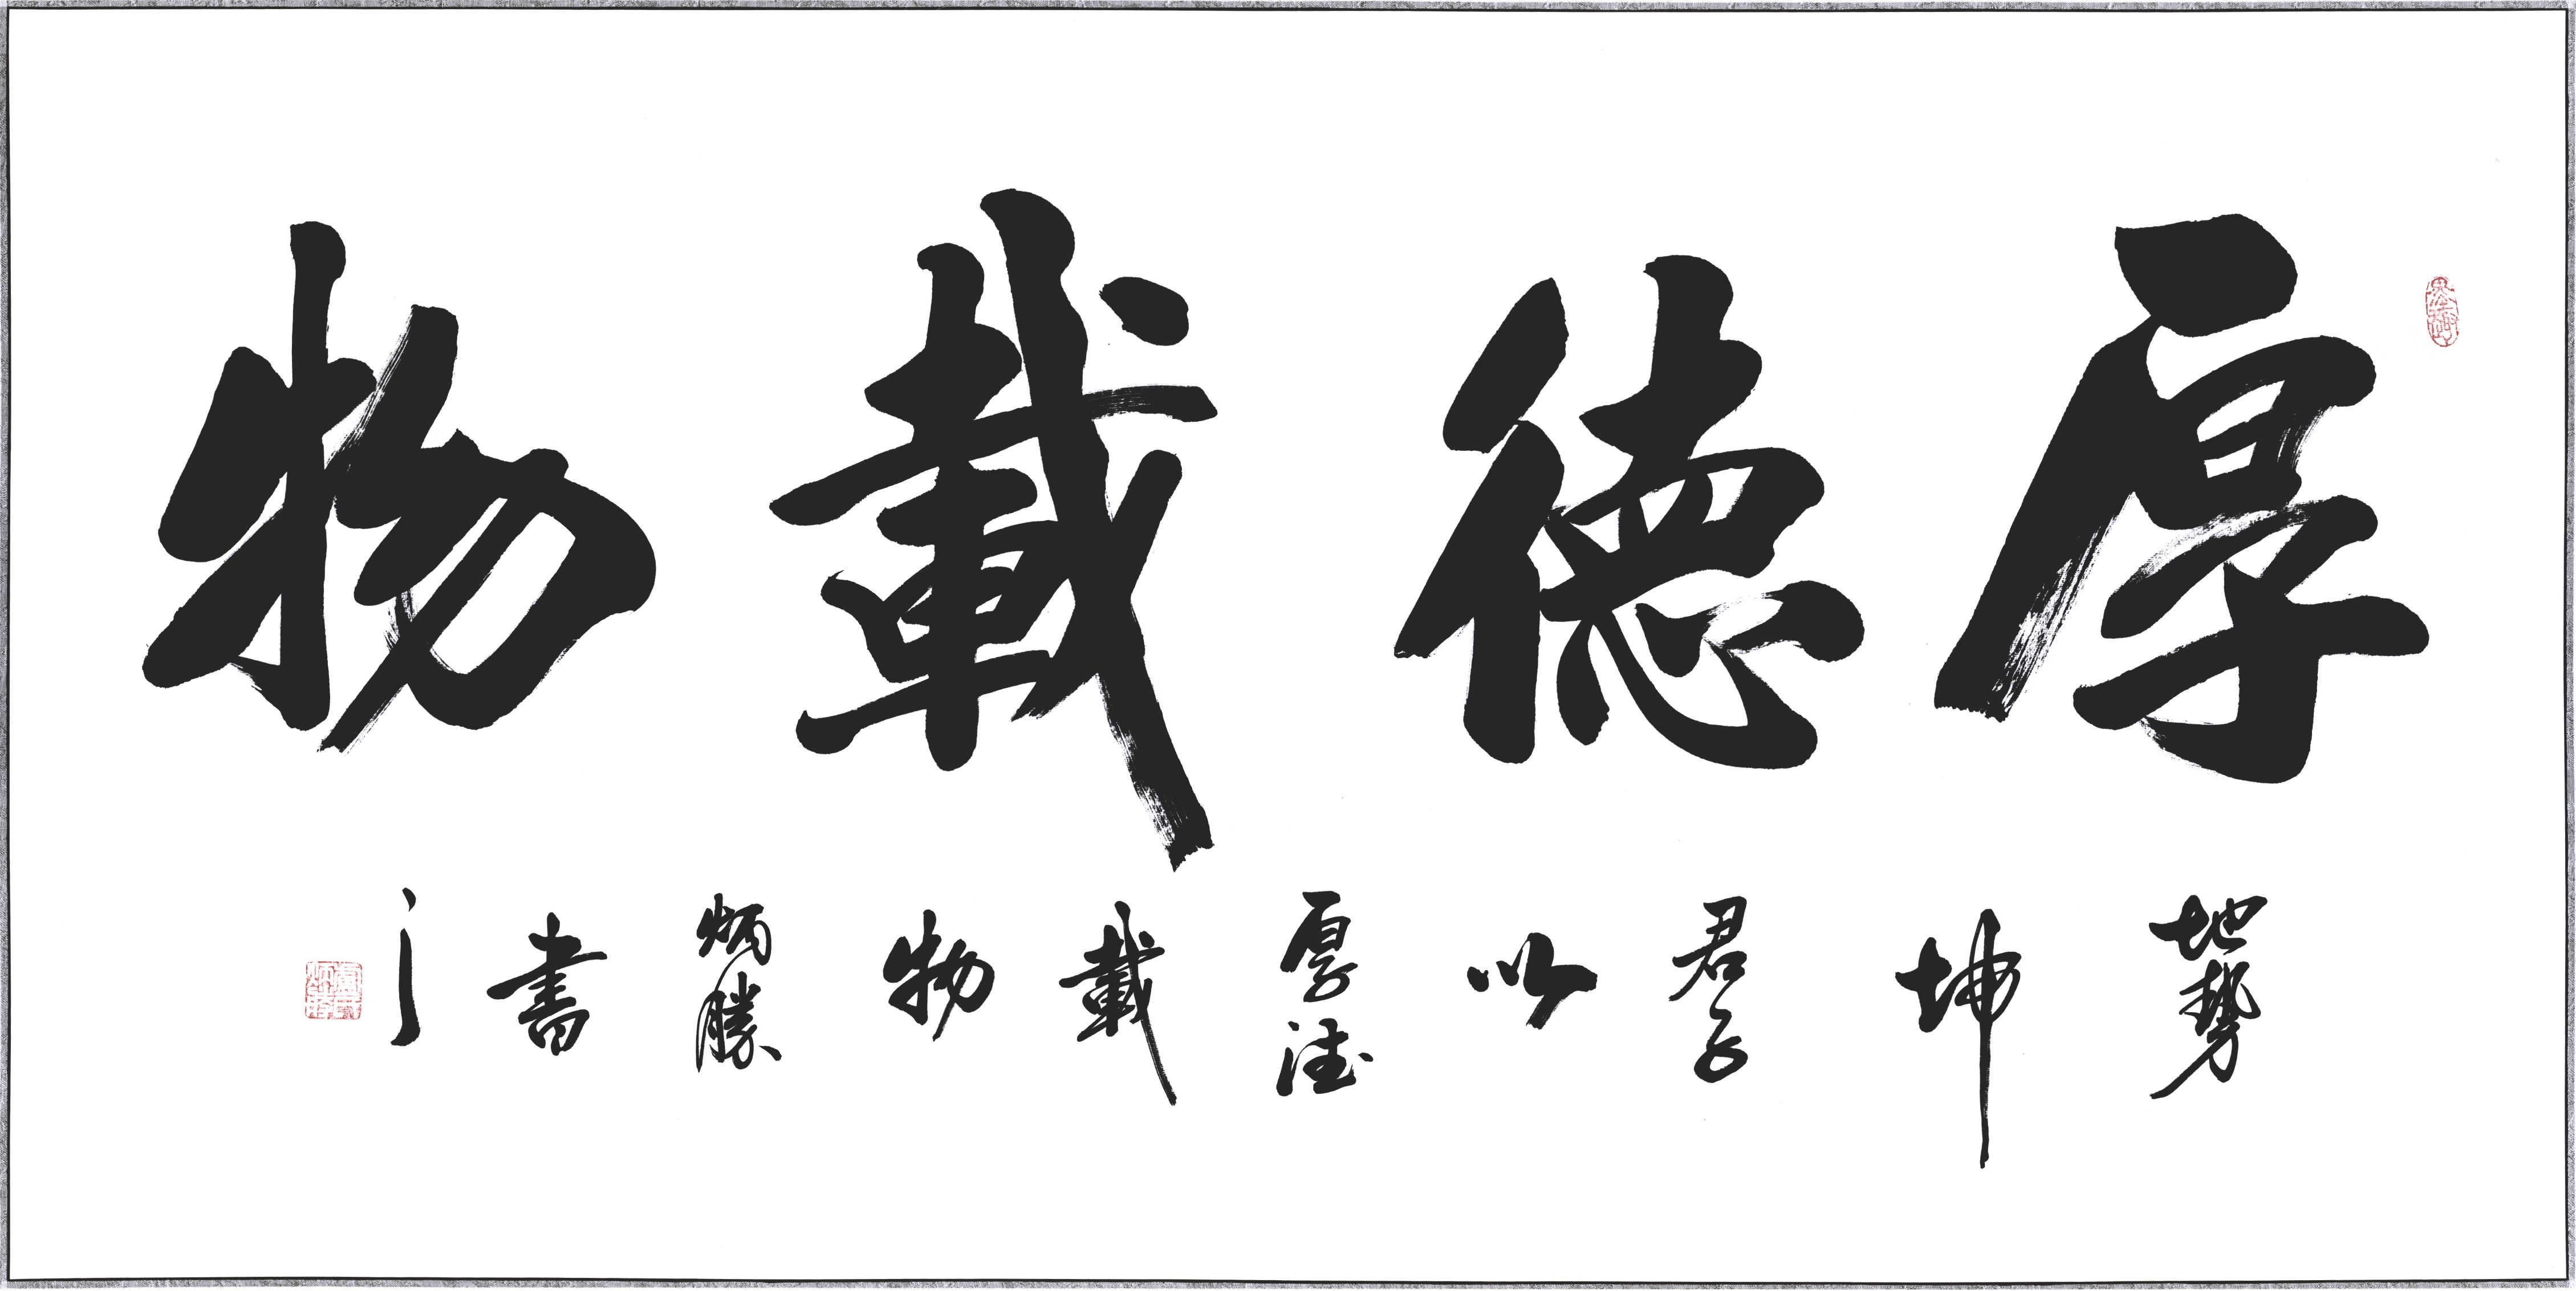 厚德載物
地勢坤君子以厚德載物炳勝書